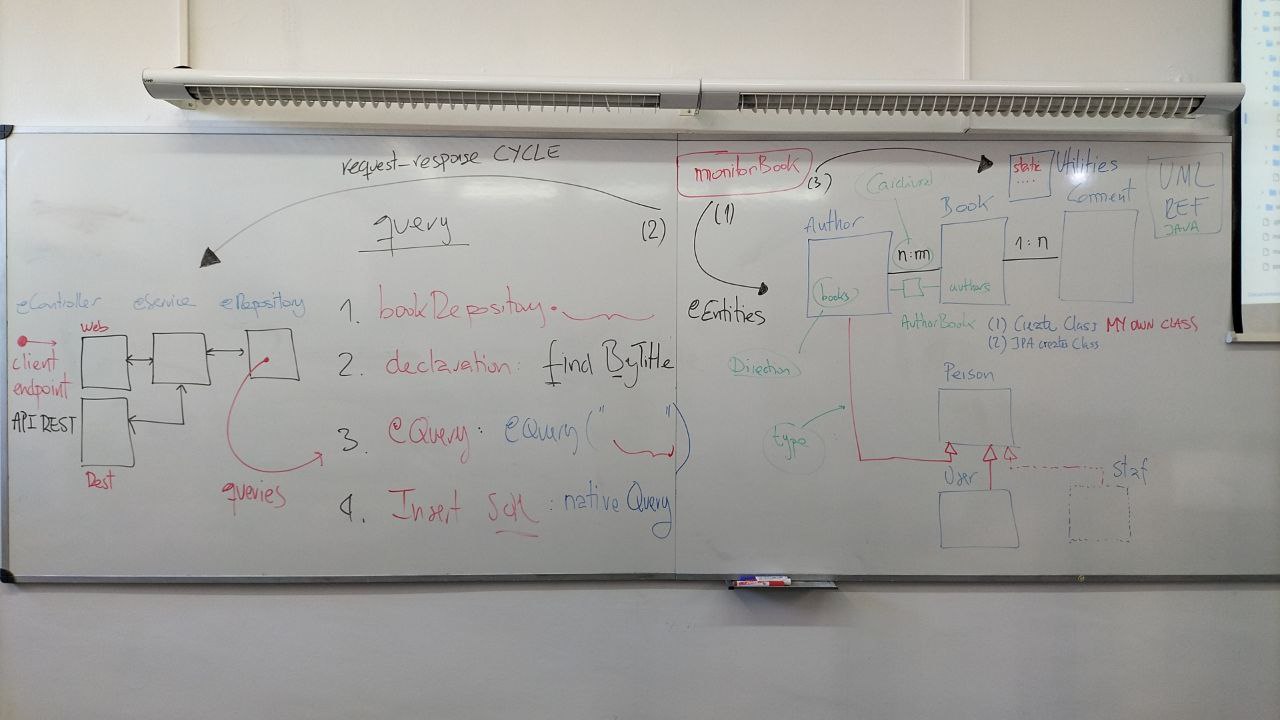 request-response CYCLE
query
(2)
@Controller
@Service
@Repository
Web
client
endpoint
API REST
Rest
queries
1. bookRepository.
2. declaration: find ByTitle
3. @Query: @Query(" ")
4. Insert SQL: native Query
monitorBook
(3)
(1)
@Entities
static
....
Utilities
UML
REF
JAVA
Author
Book
Comment
n:m
1:n
books
authors
AuthorBook
(1) Create Class MY OWN CLASS
(2) JPA creates Class
Direction
type
Person
User
Staf